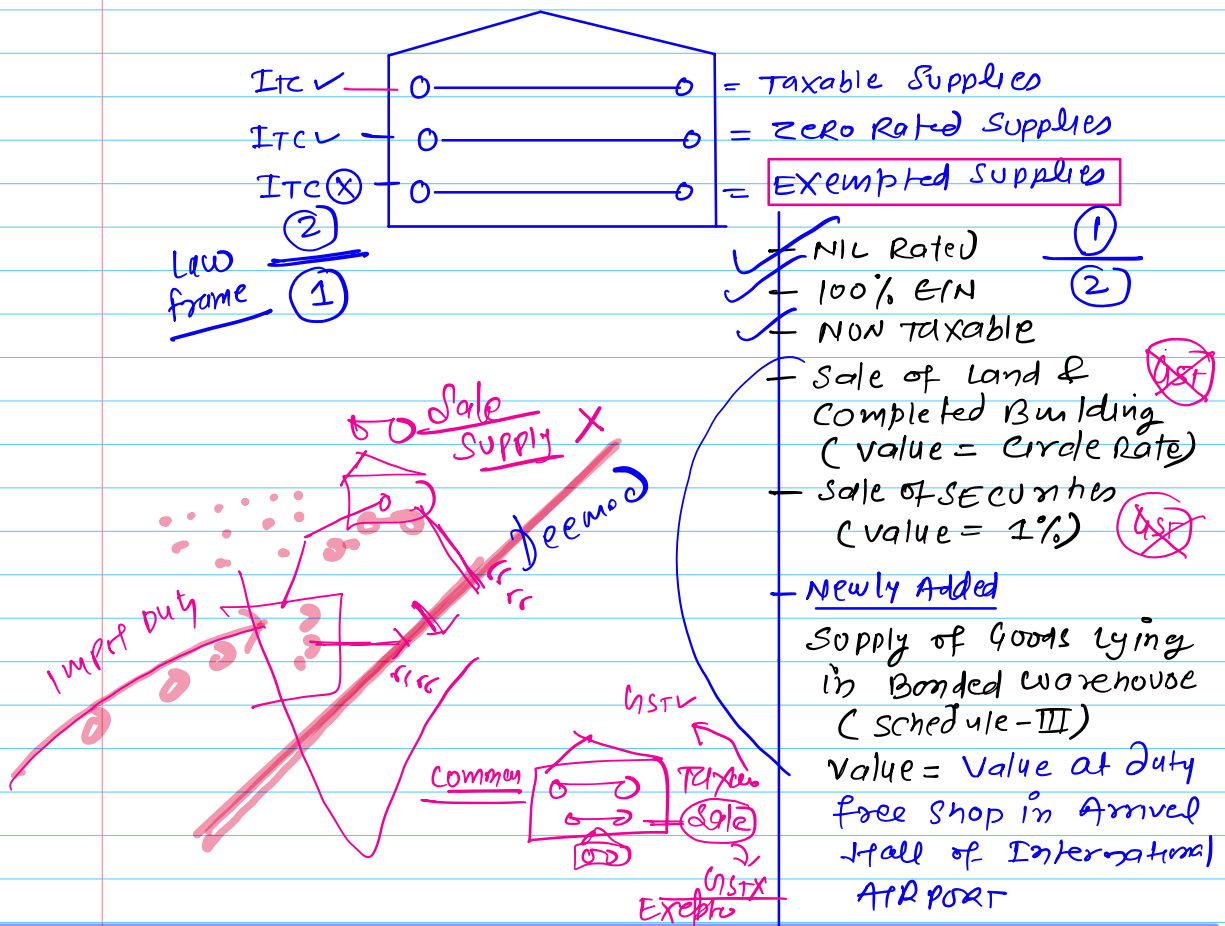 ITC ✓ = Taxable Supplies
ITC ✓ = Zero Rated Supplies
ITC ⓧ = Exempted Supplies
Law ②
frame ①
NIL Rated ①
100% E/N ②
NON Taxable
Sale of Land & GST
Completed Building
(Value = Circle Rate)
Sale of Securities
(Value = 1%) GST
Newly Added
Supply of Goods lying
in Bonded warehouse
(Schedule-III)
Value = Value at duty
free shop in Arrival
Hall of International
AIRPORT
Sale
Supply X
Deemed
Import Duty
GST✓
Common
Sale
GSTX